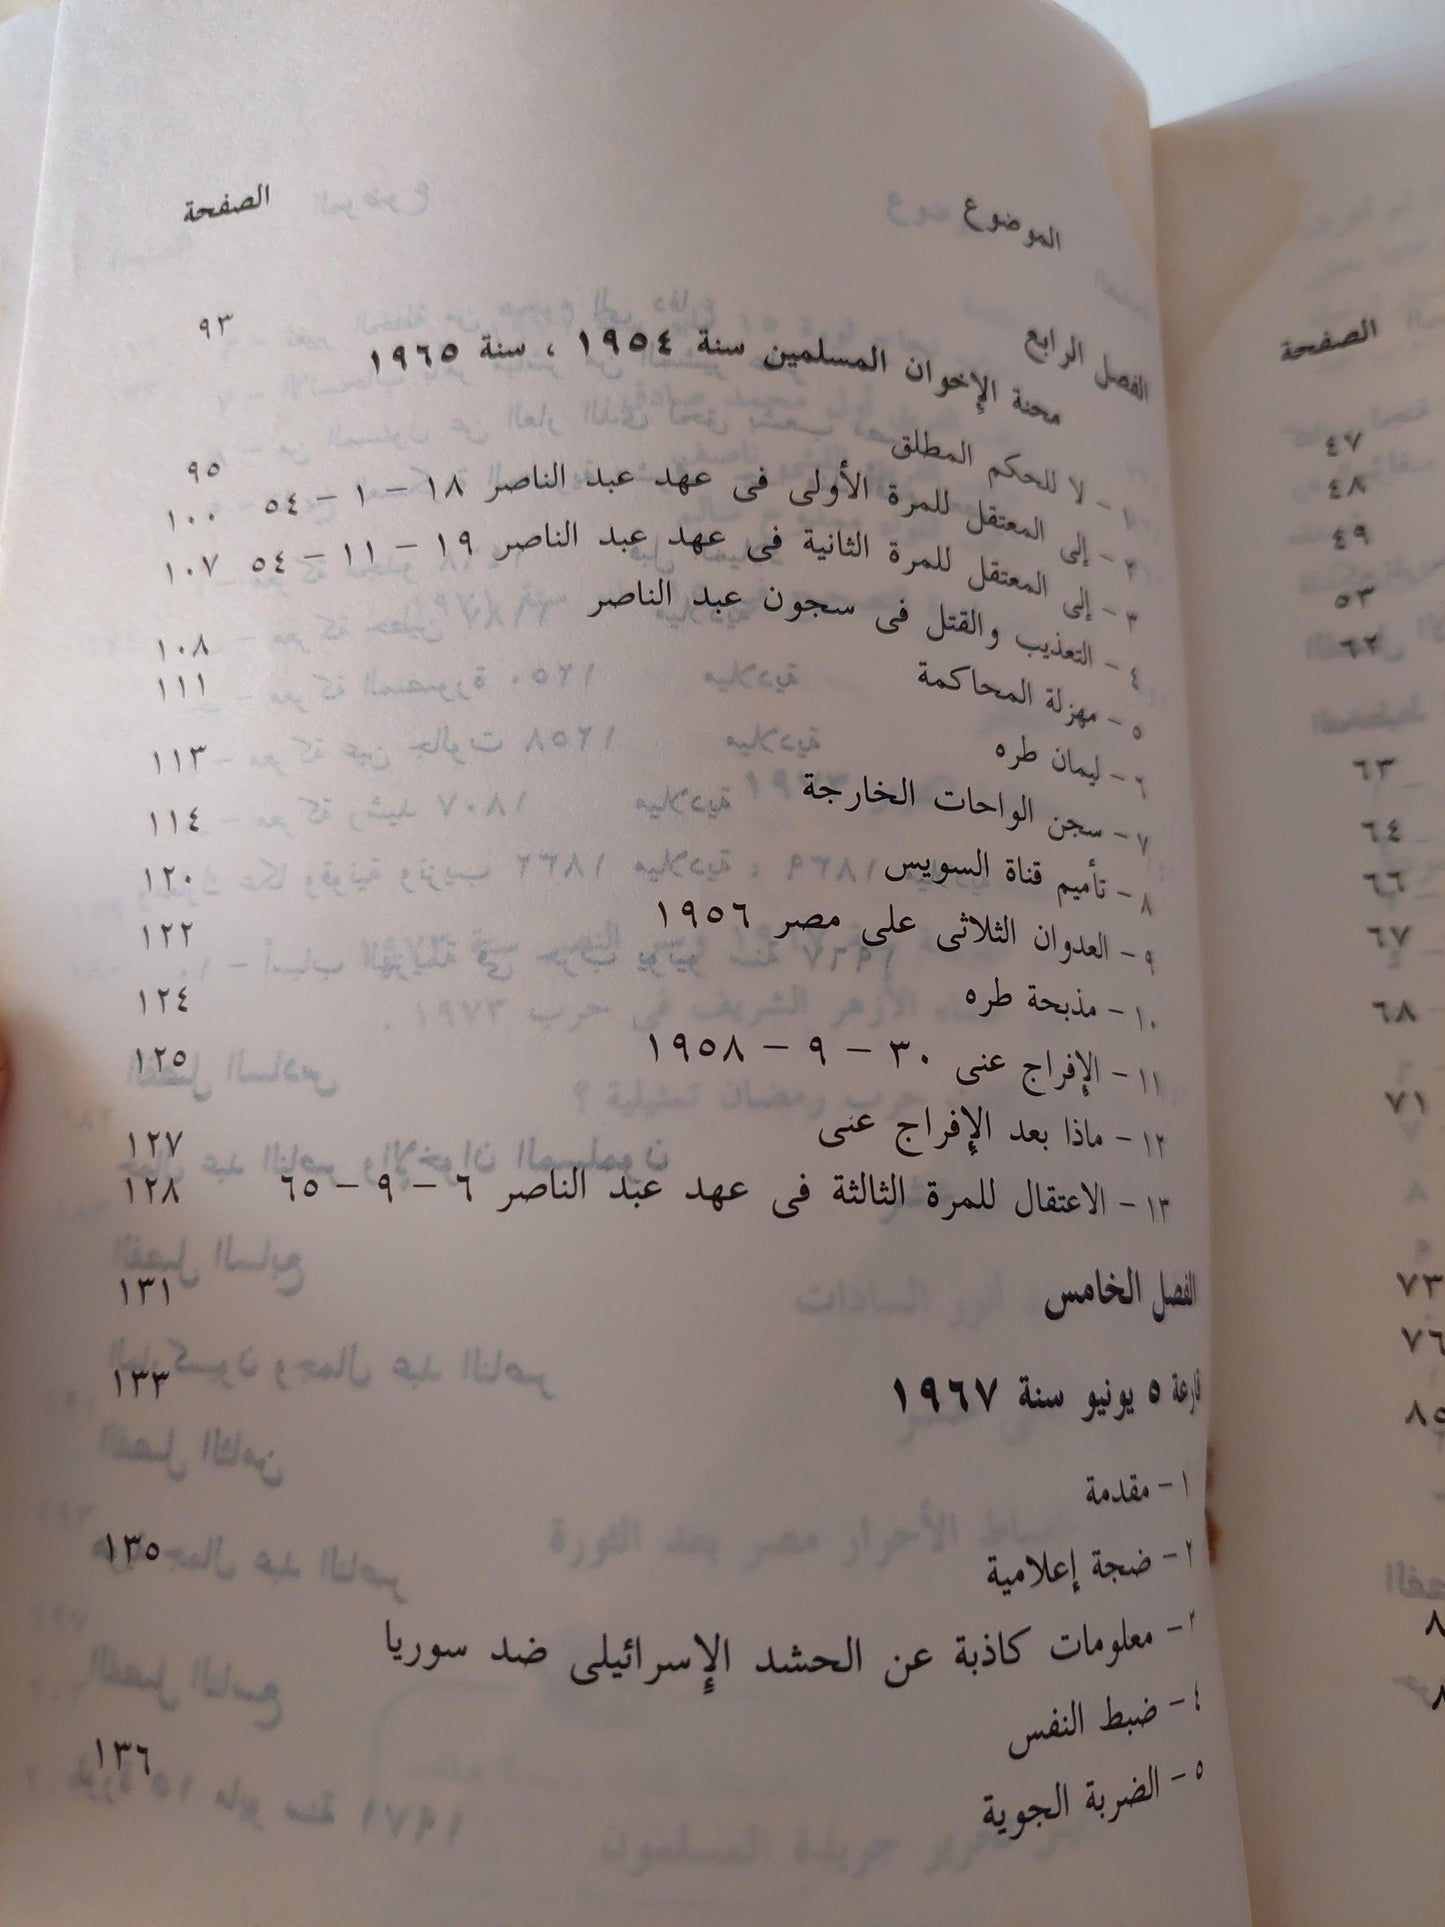 الموضوع الصفحة
الفصل الرابع ٩٣
محنة الإخوان المسلمين سنة ١٩٥٤ ، سنة ١٩٦٥
١ - لا للحكم المطلق ٩٥
٢ - إلى المعتقل للمرة الأولى فى عهد عبد الناصر ١٨ - ١ - ٥٤ ١٠٠
٣ - إلى المعتقل للمرة الثانية فى عهد عبد الناصر ١٩ - ١١ - ٥٤ ١٠٧
٤ - التعذيب والقتل فى سجون عبد الناصر ١٠٨
٥ - مهزلة المحاكمة ١١١
٦ - ليمان طره ١١٣
٧ - سجن الواحات الخارجة ١١٤
٨ - تأميم قناة السويس ١٢٠
٩ - العدوان الثلاثى على مصر ١٩٥٦ ١٢٢
١٠ - مذبحة طره ١٢٤
١١ - الإفراج عنى ٣٠ - ٩ - ١٩٥٨ ١٢٥
١٢ - ماذا بعد الإفراج عنى ١٢٧
١٣ - الاعتقال للمرة الثالثة فى عهد عبد الناصر ٦ - ٩ - ٦٥ ١٢٨
الفصل الخامس ١٣١
٥ يونيو سنة ١٩٦٧ ١٣٣
١ - مقدمة
٢ - ضجة إعلامية ١٣٥
- معلومات كاذبة عن الحشد الإسرائيلى ضد سوريا
٤ - ضبط النفس
٥ - الضربة الجوية ١٣٦
الصفحة
٤٧
٤٨
٤٩
٥٣
٦٢
٦٣
٦٤
٦٦
٦٧
٦٨
٧١
٧٣
٧٦
٨٥